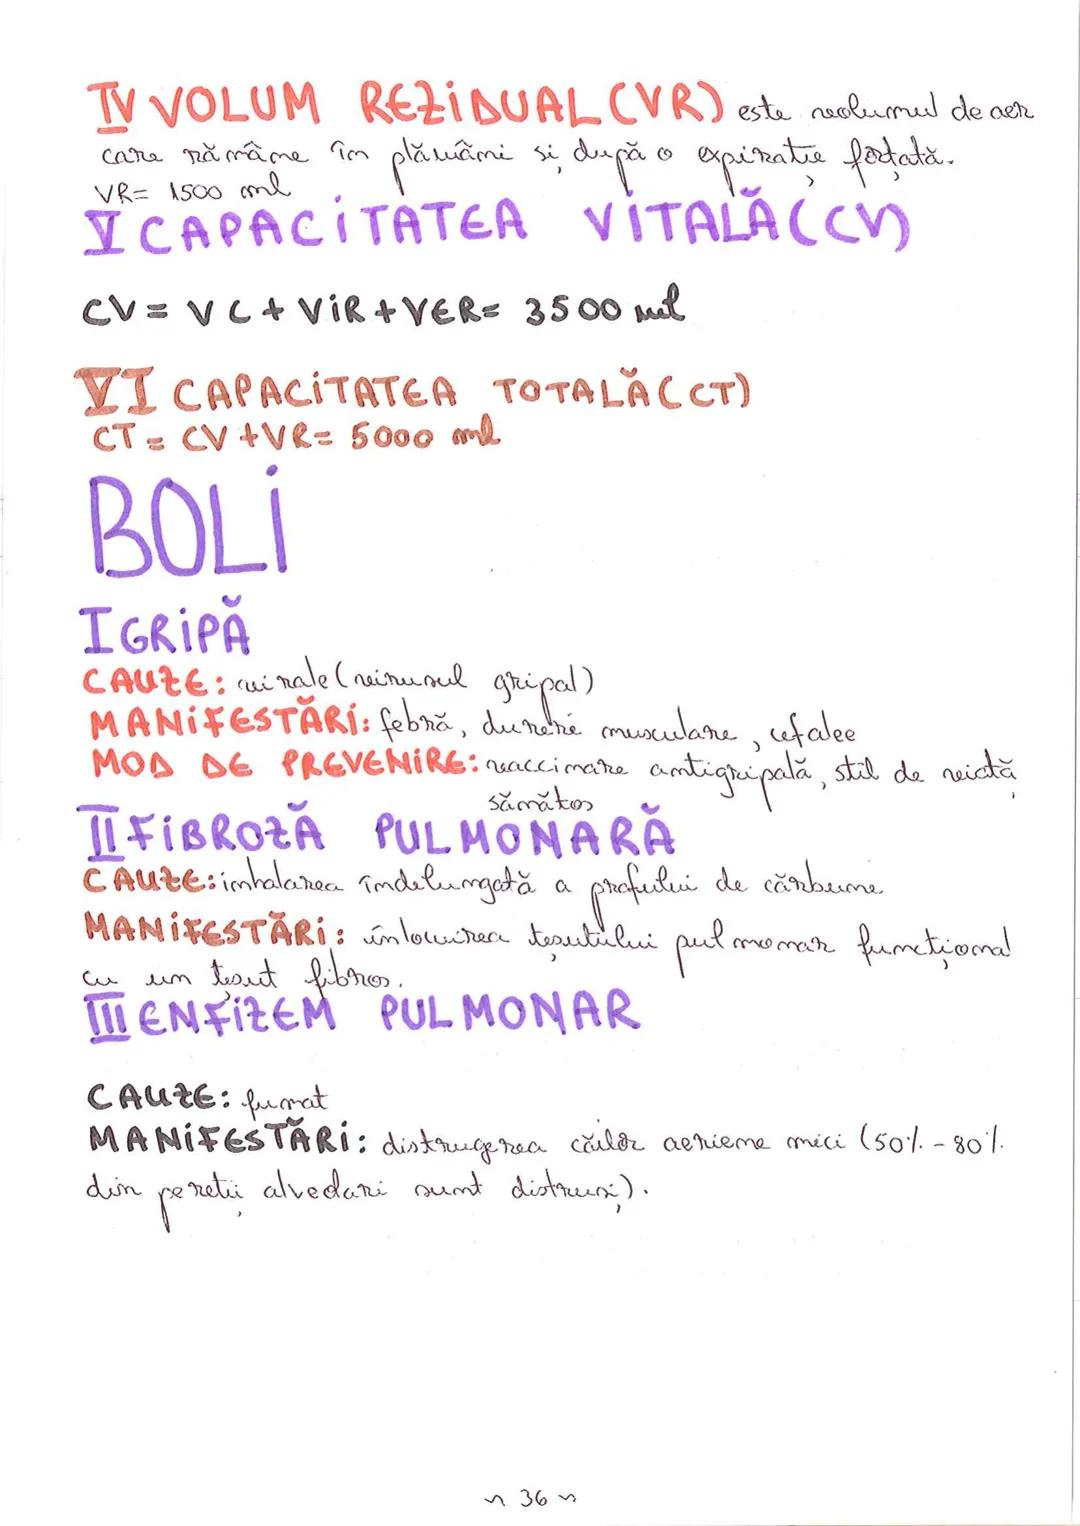 IV VOLUM REZIDUAL (VR) este volumul de aer
care rămâne în plămâni și după o expirație forțată.
VR= 1500 ml
V CAPACITATEA VITALĂ (CV)
CV = VC + VIR + VER= 3500 ml
VI CAPACITATEA TOTALĂ (CT)
CT = CV + VR= 5000 ml
BOLI
I GRIPĂ
CAUZE: virale (virusul gripal)
MANIFESTĂRI: febră, durere musculare, cefalee
MOD DE PREVENIRE: vaccinare antigripală, stil de viață
sănătos
II FIBROZĂ PULMONARĂ
CAUZE: inhalarea îndelungată a prafului de cărbune
MANIFESTĂRI: înlocuirea țesutului pulmonar funcțional
cu un țesut fibros.
III ENFIZEM PULMONAR
CAUZE: fumat
MANIFESTĂRI: distrugerea căilor aeriene mici (50% - 80%
din pereții alveolari sunt distruși).
~ 36 ~